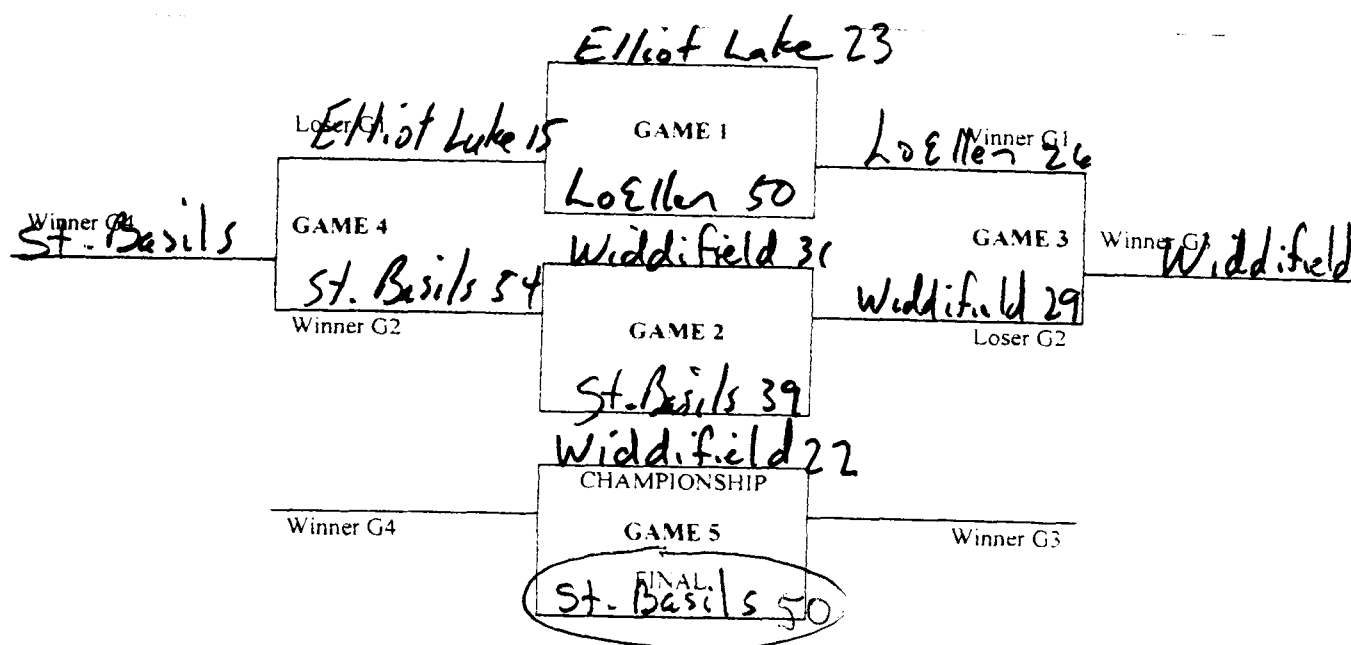 Elliot Lake 23
Loser G1
Elliot Lake 15
GAME 1
Winner G1
LoEllen 26
LoEllen 50
Winner G4
St. Basils
GAME 4
Widdifield 31
GAME 3
Winner G3
Widdifield
St. Basils 54
Widdifield 29
Winner G2
GAME 2
Loser G2
St. Basils 39
Widdifield 22
CHAMPIONSHIP
Winner G4
GAME 5
Winner G3
FINAL
St. Basils 50